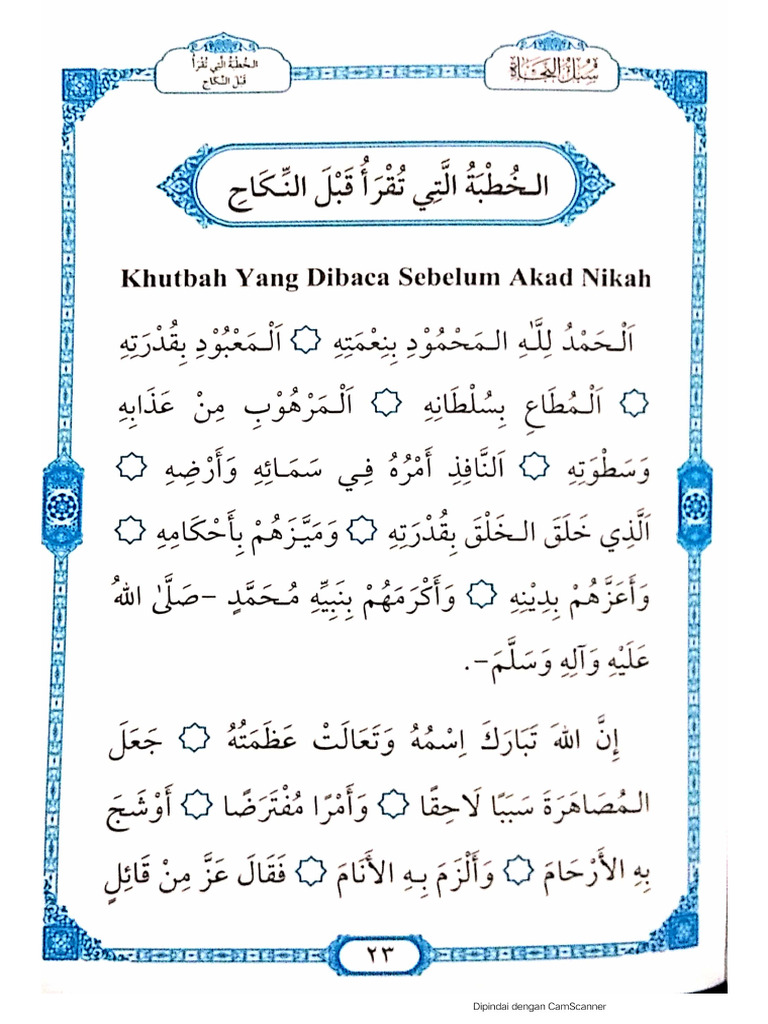 سُبُلُ النَّجَاةِ
الخُطْبَةُ الَّتِي تُقْرَأُ
قَبْلَ النِّكَاحِ
الـخُطْبَةُ الَّتِي تُقْرَأُ قَبْلَ النِّكَاحِ
Khutbah Yang Dibaca Sebelum Akad Nikah
اَلْـحَمْدُ لِلّٰهِ الـمَحْمُوْدِ بِنِعْمَتِهِ ۞ اَلْـمَعْبُوْدِ بِقُدْرَتِهِ
۞ اَلْـمُطَاعِ بِسُلْطَانِهِ ۞ اَلْـمَرْهُوْبِ مِنْ عَذَابِهِ
وَسَطْوَتِهِ ۞ اَلنَّافِذِ أَمْرُهُ فِـي سَمَـائِهِ وَأَرْضِهِ ۞
اَلَّذِي خَلَقَ الـخَلْقَ بِقُدْرَتِهِ ۞ وَمَيَّـزَهُمْ بِأَحْكَامِهِ ۞
وَأَعَزَّهُمْ بِدِيْنِهِ ۞ وَأَكْرَمَهُمْ بِنَبِيِّهِ مُـحَمَّدٍ –صَلَّىٰ اللهُ
عَلَيْهِ وَآلِهِ وَسَلَّمَ–.
إِنَّ اللهَ تَبَارَكَ اِسْمُهُ وَتَعَالَتْ عَظَمَتُهُ ۞ جَعَلَ
الـمُصَاهَرَةَ سَبَبًا لَاحِقًا ۞ وَأَمْرًا مُفْتَرَضًا ۞ أَوْشَجَ
بِهِ الأَرْحَامَ ۞ وَأَلْزَمَ بِـهِ الأَنَامَ ۞ فَقَالَ عَزَّ مِنْ قَائِلٍ
٢٣
Dipindai dengan CamScanner